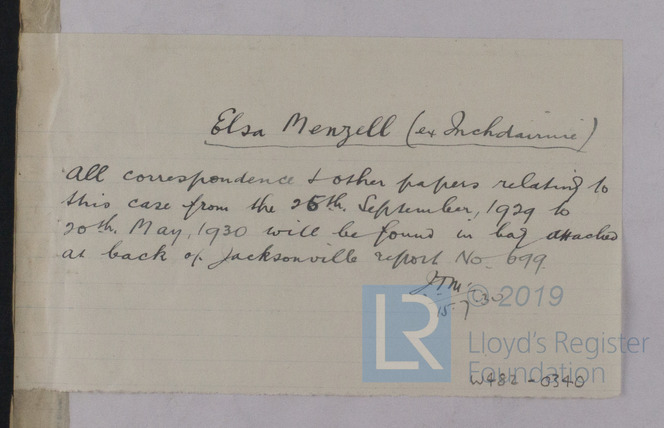 Elsa Menzell (ex Inchdairnie)
All correspondence & other papers relating to
this case from the 26th. September, 1929 to
20th. May, 1930 will be found in bag attached
at back of Jacksonville report No. 699.
15.7.30
LR
© 2019
Lloyd's Register
Foundation
W482-0340